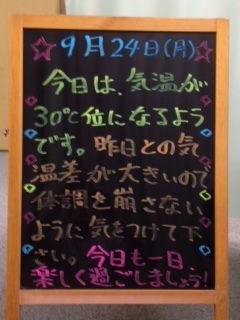 9月24日(月)
今日は、気温が
30℃位になるよう
です。昨日との気
温差が大きいので
体調を崩さない
ように気をつけて下
さい。今日も一日
楽しく過ごしましょう!